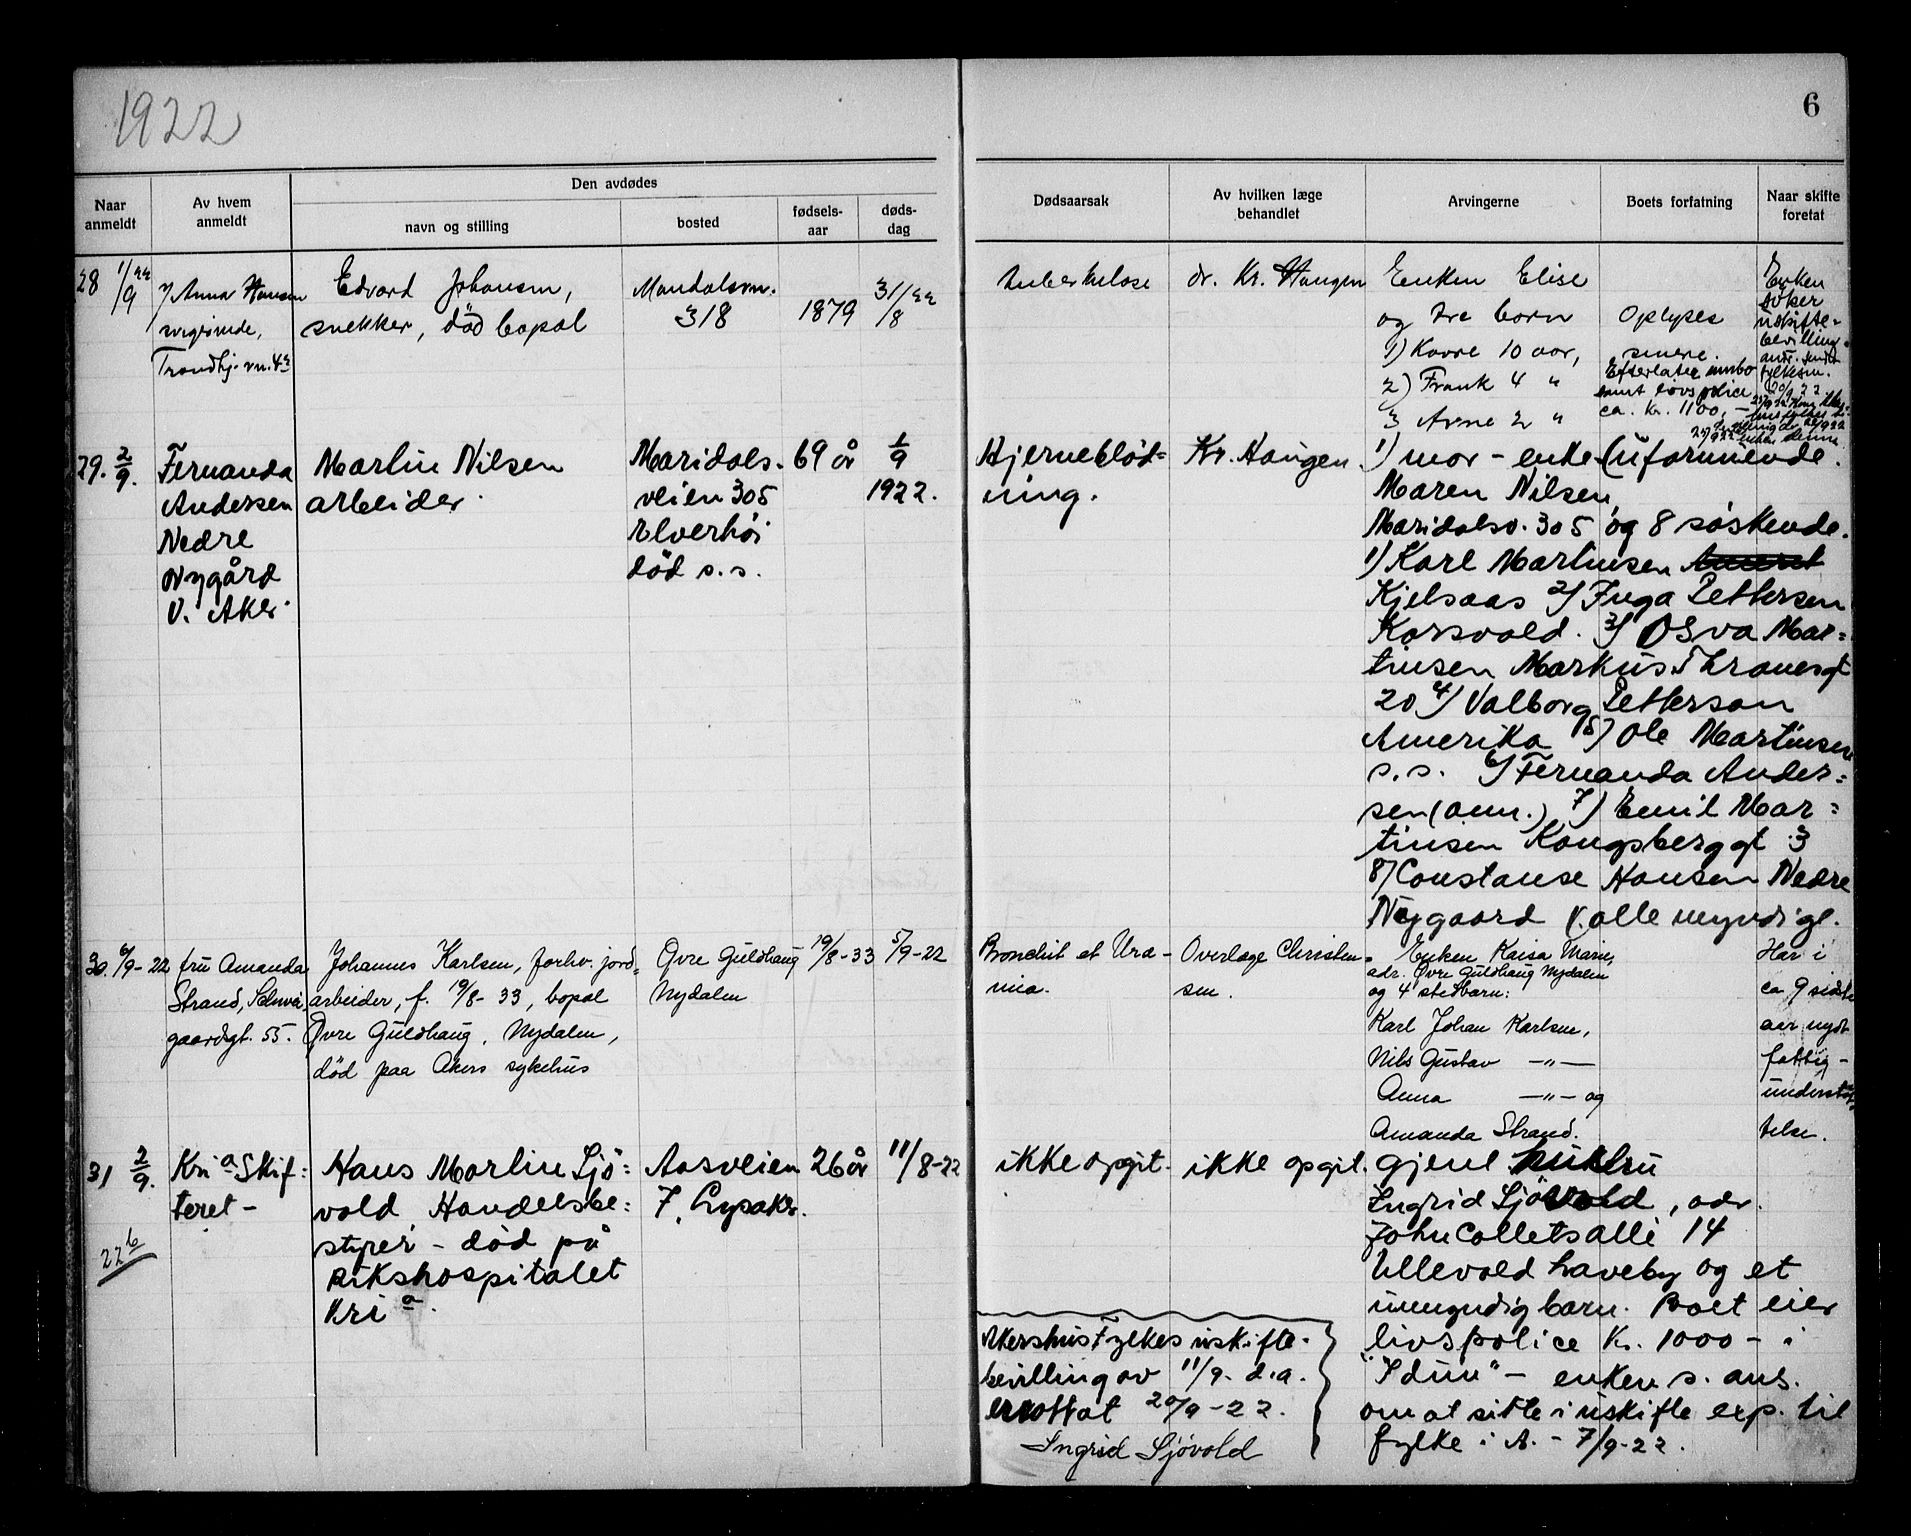 1922
6
Den avdødes
Naar anmeldt
Av hvem anmeldt
navn og stilling
bosted
fødsels-aar
døds-dag
Dødsaarsak
Av hvilken læge behandlet
Arvingerne
Boets forfatning
Naar skifte foretat
28 1/9 22
Anna Hansen
svigerinde,
Trondhj.vn. 42
Edvard Johansen,
snekker, död bopæl
Maridalsvn.
318
1879
31/8 22
Tuberkulose
dr. Kr. Haugen
Enken Elise
og tre barn
1) Kaare 10 aar,
2) Frank 4 "
3 Arne 2 "
Oplyses
senere.
Efterlater innbo
samt livspolice
ca. kr. 1100,-
Enken
søker
uskifte-
bevilling
29. 2/9.
Fernanda
Andersen
Nedre
Nygård
V. Aker.
Martin Nilsen
arbeider.
Maridals-
veien 305
Elverhöi
död s.s.
69 år
1/9
1922.
Hjerneblöd=
ning.
Kr. Haugen.
1) mor - enke (uformuende.
Maren Nilsen,
Maridalsv. 305 og 8 söskende.
1) Karl Martinsen
Kjelsaas 2) Inga Pettersen
Korsvold. 3) Osva Mar=
tinsen Markus Thranesgt
20 4) Valborg Petterson
Amerika 5) Ole Martinsen
s.s. 6) Fernanda Ander=
sen (anm.) 7) Emil Mar=
tinsen Kongsberggt 3
8) Constanse Hansen Nedre
Nygaard (alle myndige.
30. 6/9-22
fru Amanda
Strand, Schwei-
gaardsgt. 55.
Johannes Karlsen, forhv. jord=
arbeider, f. 19/8-33, bopæl
Övre Guldhaug, Nydalen,
död paa Akers sykehus
Övre Guldhaug
Nydalen
19/8-33
5/9-22
Bronchit et Uræ-
mia.
Overlæge Christen=
sen.
Enken Kaisa Marie,
adr. Övre Guldhaug Nydalen
og 4 stedbarn:
Karl Johan Karlsen,
Nils Gustav -"-
Anna -"- og
Amanda Strand.
Har i
ca 9 sidste
aar nydt
fattig-
understöt-
telse.
31 2/9.
Kri a Skif=
teret -
22 6
Hans Martin Sjö=
vold, Handelsbe=
styrer - död på
Rikshospitalet
Kri a.
Aasveien
7, Lysaker.
26 år
11/8-22
ikke opgit.
ikke opgit.
gjenl.
Ingrid Sjövold, adr.
John Colletsalle 14
Ullevold haveby og et
umyndig barn. Boet eier
livspolice Kr. 1000 - i
"Idun" - enken s. ans.
om at sitte i uskifte exp. til
fylke i A. - 7/9-22.
Akershus Fylkes uskifte-
bevilling av 11/9. d.a.
mottat 20/9-22.
Ingrid Sjövold